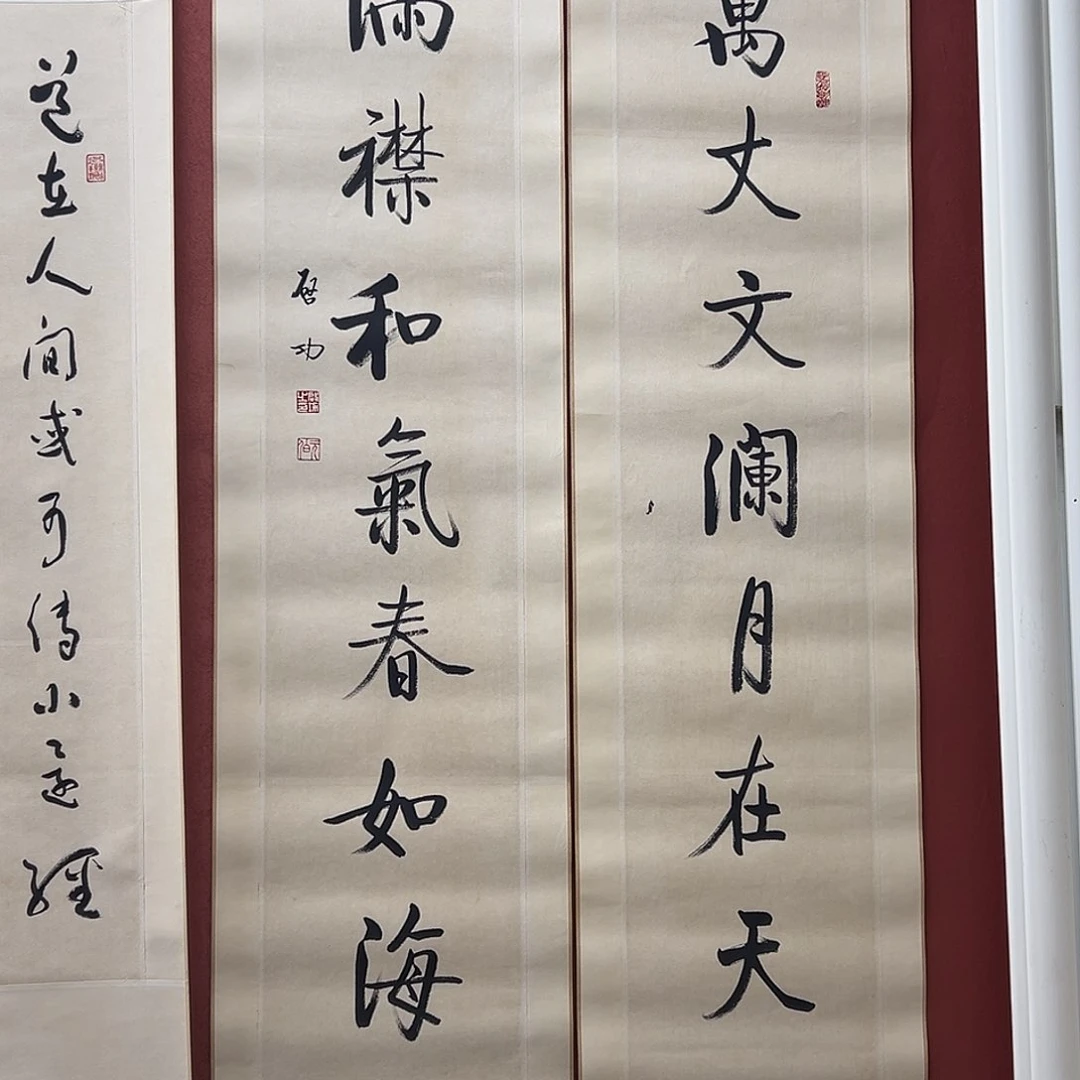 萬丈文瀾月在天
滿襟和氣春如海
啓功
道在人間或可傳小還經